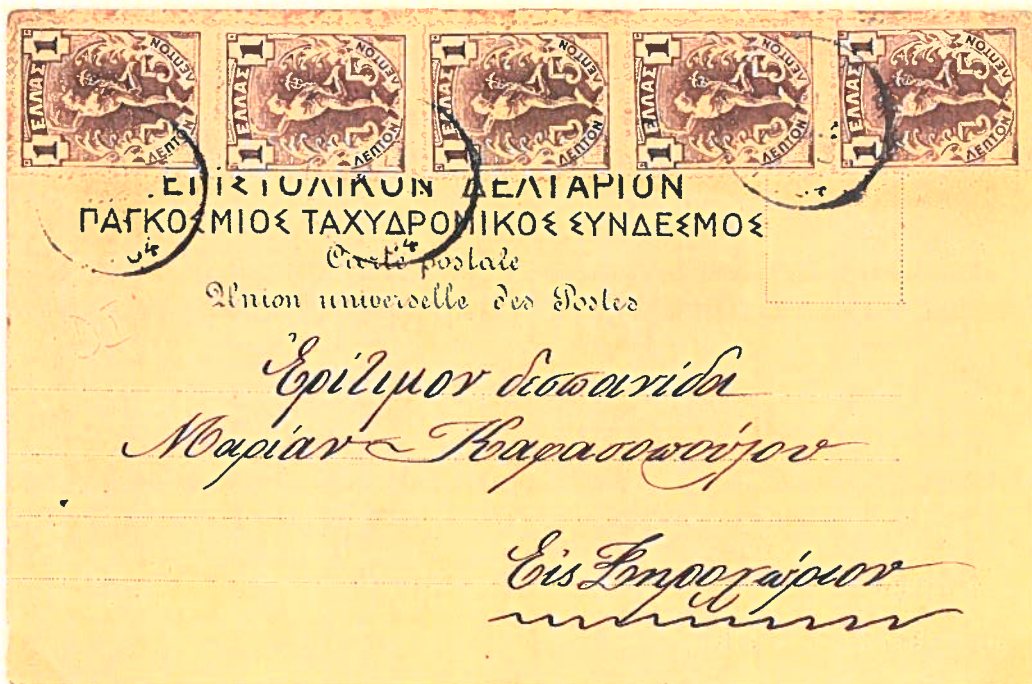 1 ΕΛΛΑΣ 1 ΛΕΠΤΟΝ ΛΕΠΤΟΝ
1 ΕΛΛΑΣ 1 ΛΕΠΤΟΝ ΛΕΠΤΟΝ
1 ΕΛΛΑΣ 1 ΛΕΠΤΟΝ ΛΕΠΤΟΝ
1 ΕΛΛΑΣ 1 ΛΕΠΤΟΝ ΛΕΠΤΟΝ
1 ΕΛΛΑΣ 1 ΛΕΠΤΟΝ ΛΕΠΤΟΝ
ΕΠΙΣΤΟΛΙΚΟΝ ΔΕΛΤΑΡΙΟΝ
ΠΑΓΚΟΣΜΙΟΣ ΤΑΧΥΔΡΟΜΙΚΟΣ ΣΥΝΔΕΣΜΟΣ
Carte postale
Union universelle des Postes
Ἐρίτιμον δεσποινίδα
Μαρίαν
Εἰς Ξηροχώριον